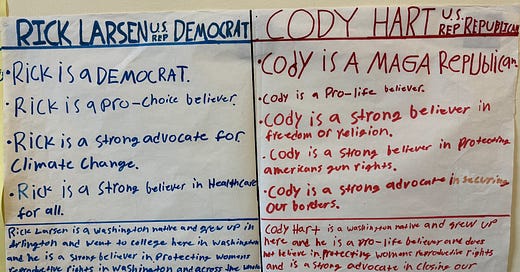 RICK LARSEN U.S. REP DEMOCRAT
• Rick is a DEMOCRAT.
• Rick is a pro-choice believer.
• Rick is a strong advocate for
Climate Change.
• Rick is a strong believer in Healthcare
for all.
Rick Larsen is a washington native and grew up in
Arlington and went to college here in Washington
and he is a strong Believer in Protecting womens
reproductive rights in washington and across the
CODY HART U.S. REP REPUBLICAN
• Cody is A MAGA Republican.
• Cody is a Pro-life believer.
• Cody is a strong believer in
freedom of religion.
• Cody is a strong believer in Protecting
americans gun rights.
• Cody is a strong advocate in securing
our borders.
Cody Hart is a washington native and grew up
here and he is a Pro-life believer and does
not believe in protecting womens reproductive rights
and is a strong advocate in closing our